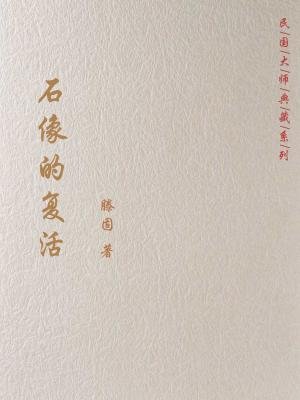 民|国|大|师|典|藏|系|列
石像的复活
滕固 著